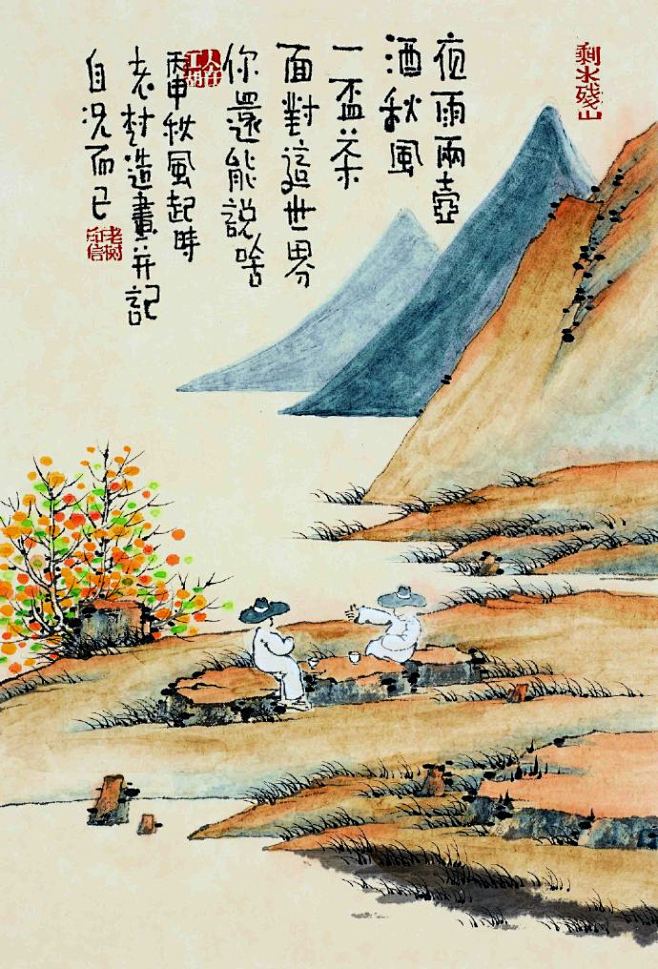 剩水殘山
夜雨兩壺
酒秋風
一盃茶
面對這世界
你還能說啥
人在江湖
丙申秋風起時
老树造畫并記
自况而已
老树印信